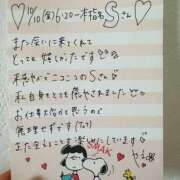 10/10(金)6:20〜本指名Sさん♡
また会いに来てくれて
とっても嬉しかったです
相変わらずニコニコのSさんで
私自身とても癒やされました
お仕事大変だと思うので
無理せずです(TT)
また会えることを楽しみにしています
SMAK